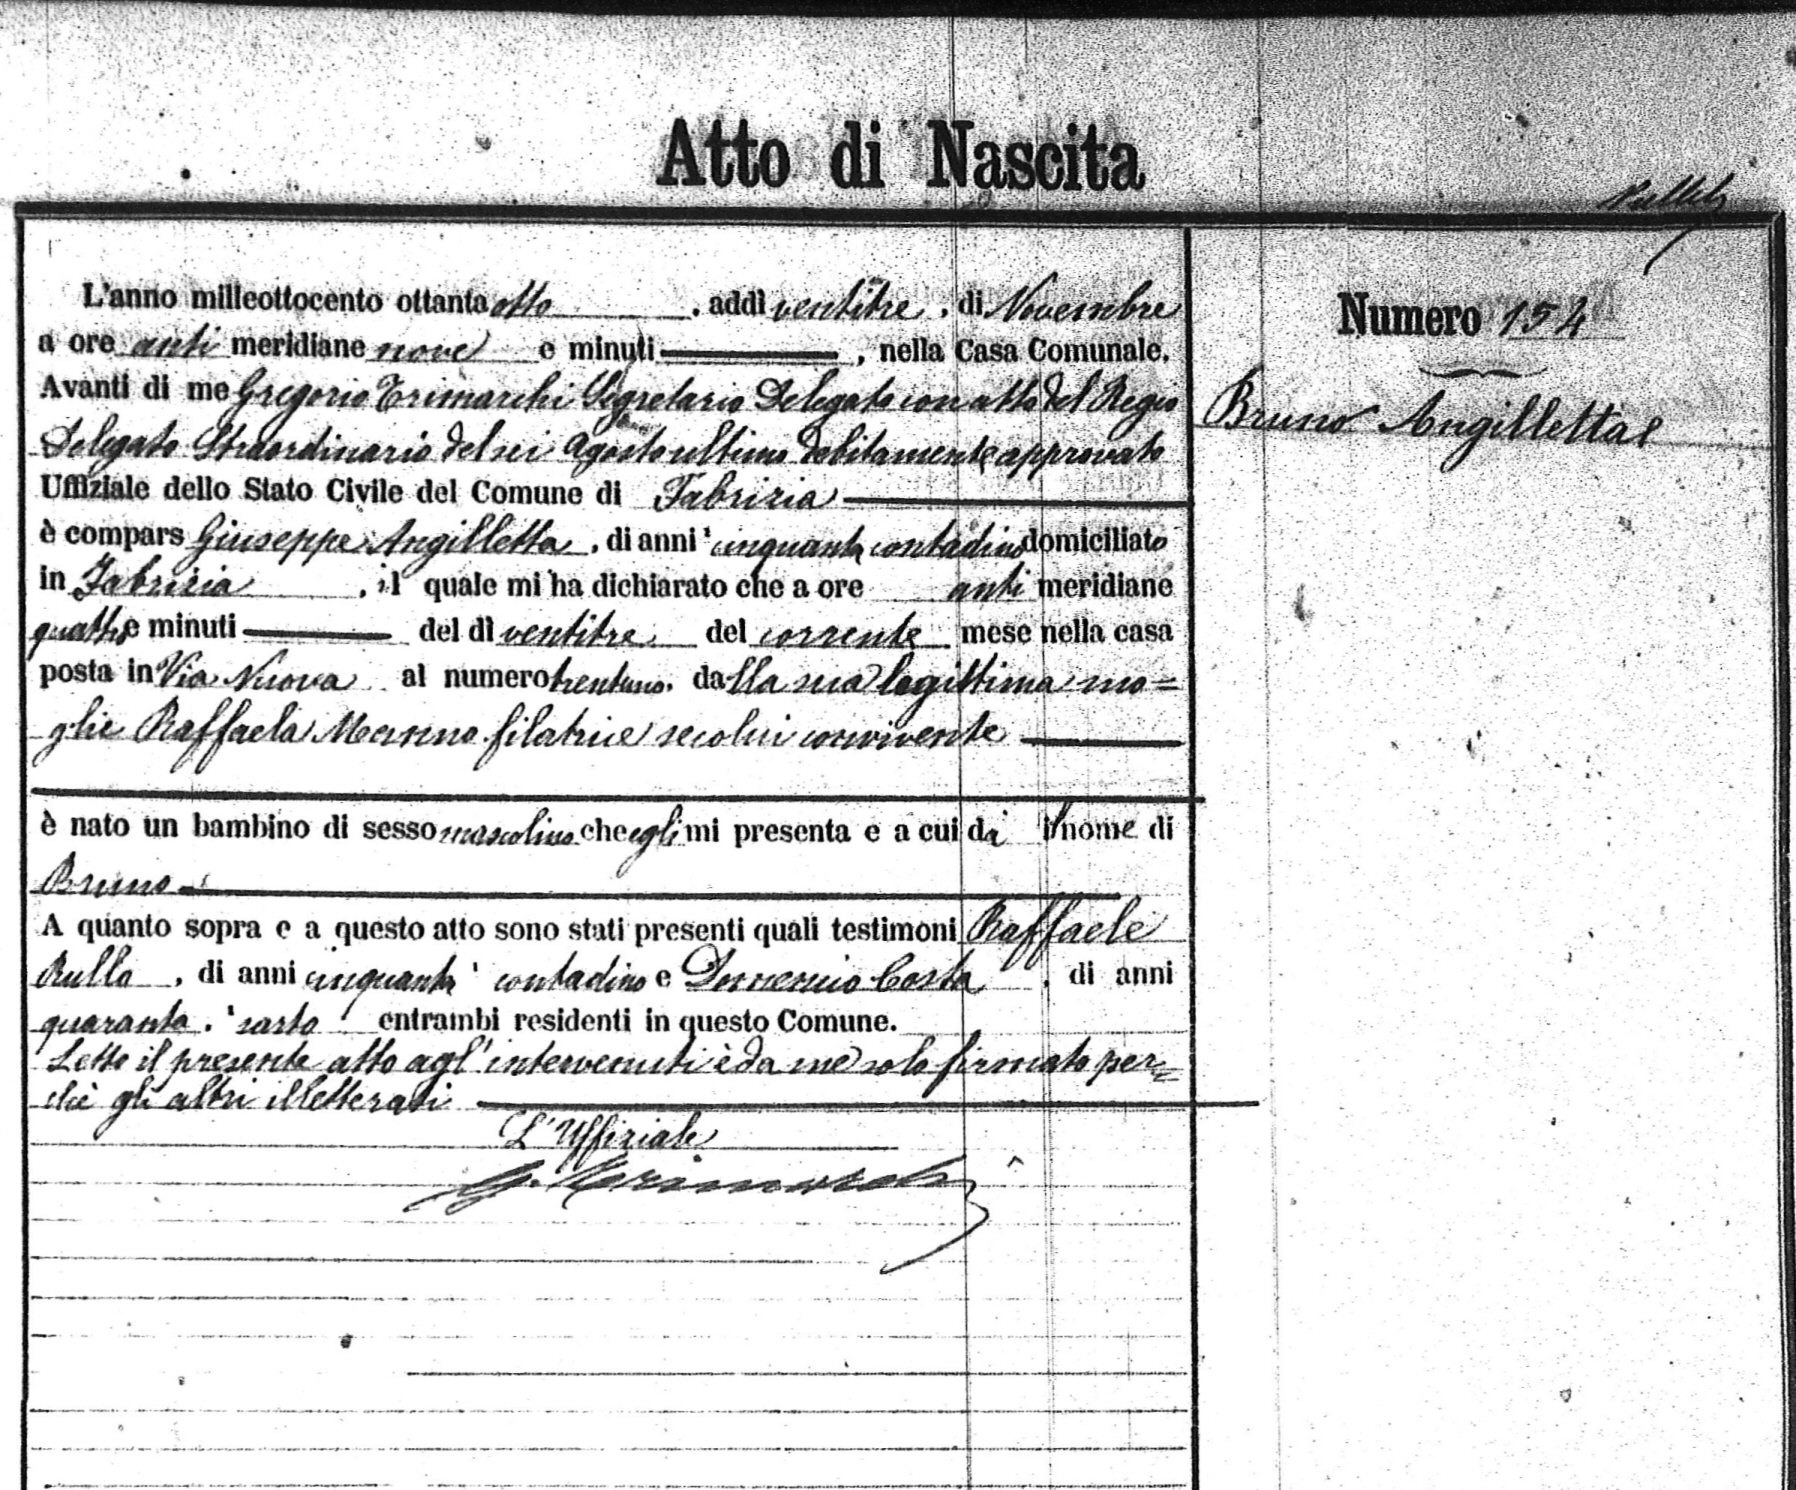 Atto di Nascita
Numero 154
Bruno Angilletta
L'anno milleottocento ottantaotto, addì ventitre, di Novembre
a ore anti meridiane nove e minuti, nella Casa Comunale.
Avanti di me Gregorio Trimarchi Segretario Delegato con atto del Regio
Delegato Straordinario del sei Agosto ultimo debitamente approvato
Uffiziale dello Stato Civile del Comune di Fabrizia
è compars Giuseppe Angilletta, di anni cinquanta contadino domiciliato
in Fabrizia, il quale mi ha dichiarato che a ore anti meridiane
quattro e minuti del dì ventitre del corrente mese nella casa
posta in Via Nuova al numero trentuno, dalla sua legittima mo=
glie Raffaela Manno filatrice secolui convivente
è nato un bambino di sesso mascolino che egli mi presenta e a cui dà il nome di
Bruno
A quanto sopra e a questo atto sono stati presenti quali testimoni Raffaele
Rullo, di anni cinquanta contadino e Domenico Costa, di anni
quaranta, sarto entrambi residenti in questo Comune.
Letto il presente atto agl'intervenuti è da me solo firmato per=
chè gli altri illetterati
L'Uffiziale
G. Trimarchi